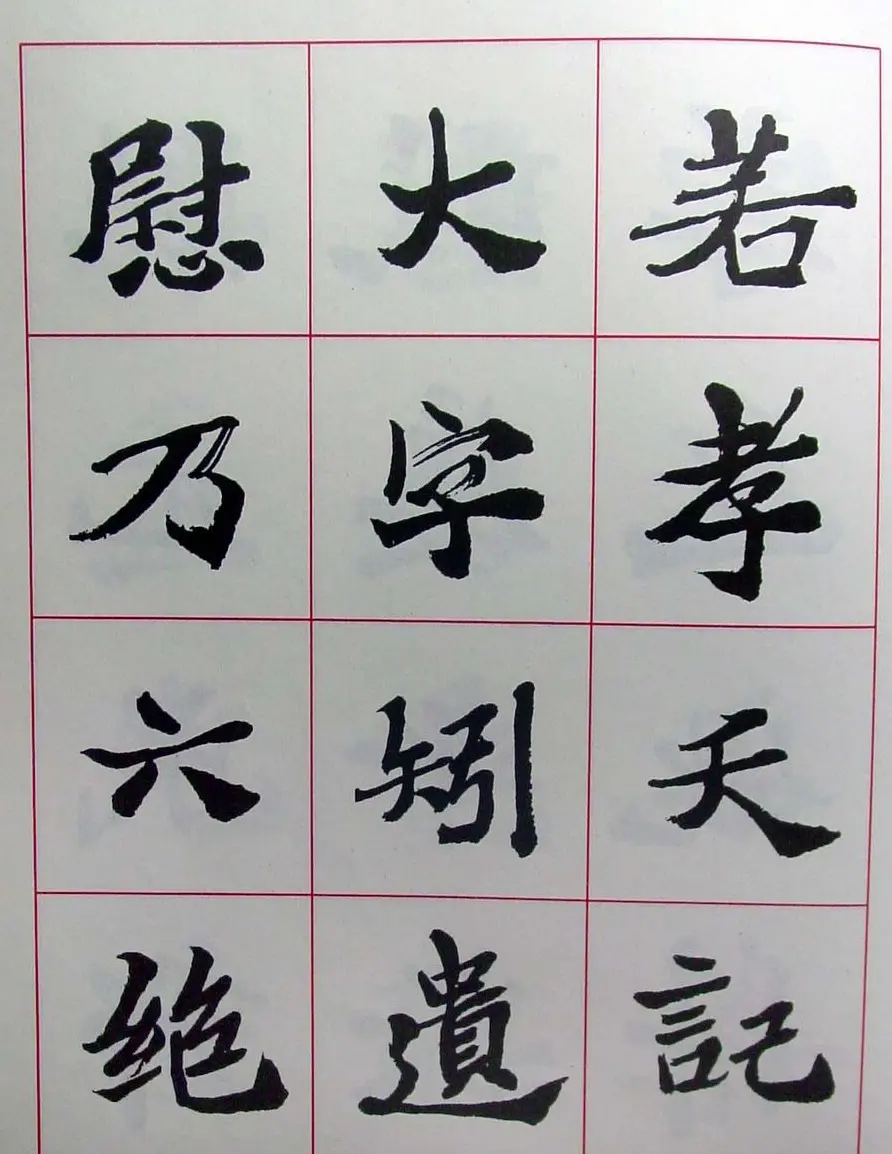 若孝天記
大字矧遺
慰乃六絶